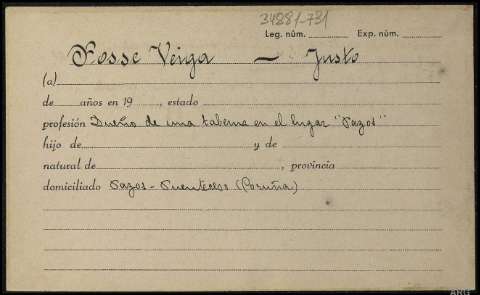 34281-731
Leg. núm. Exp. núm.
Posse Veiga — Justo
(a)
de años en 19 , estado
profesión Dueño de una taberna en el lugar "Pazos"
hijo de y de
natural de , provincia
domiciliado Pazos - Puenteceso (Coruña)
ARG